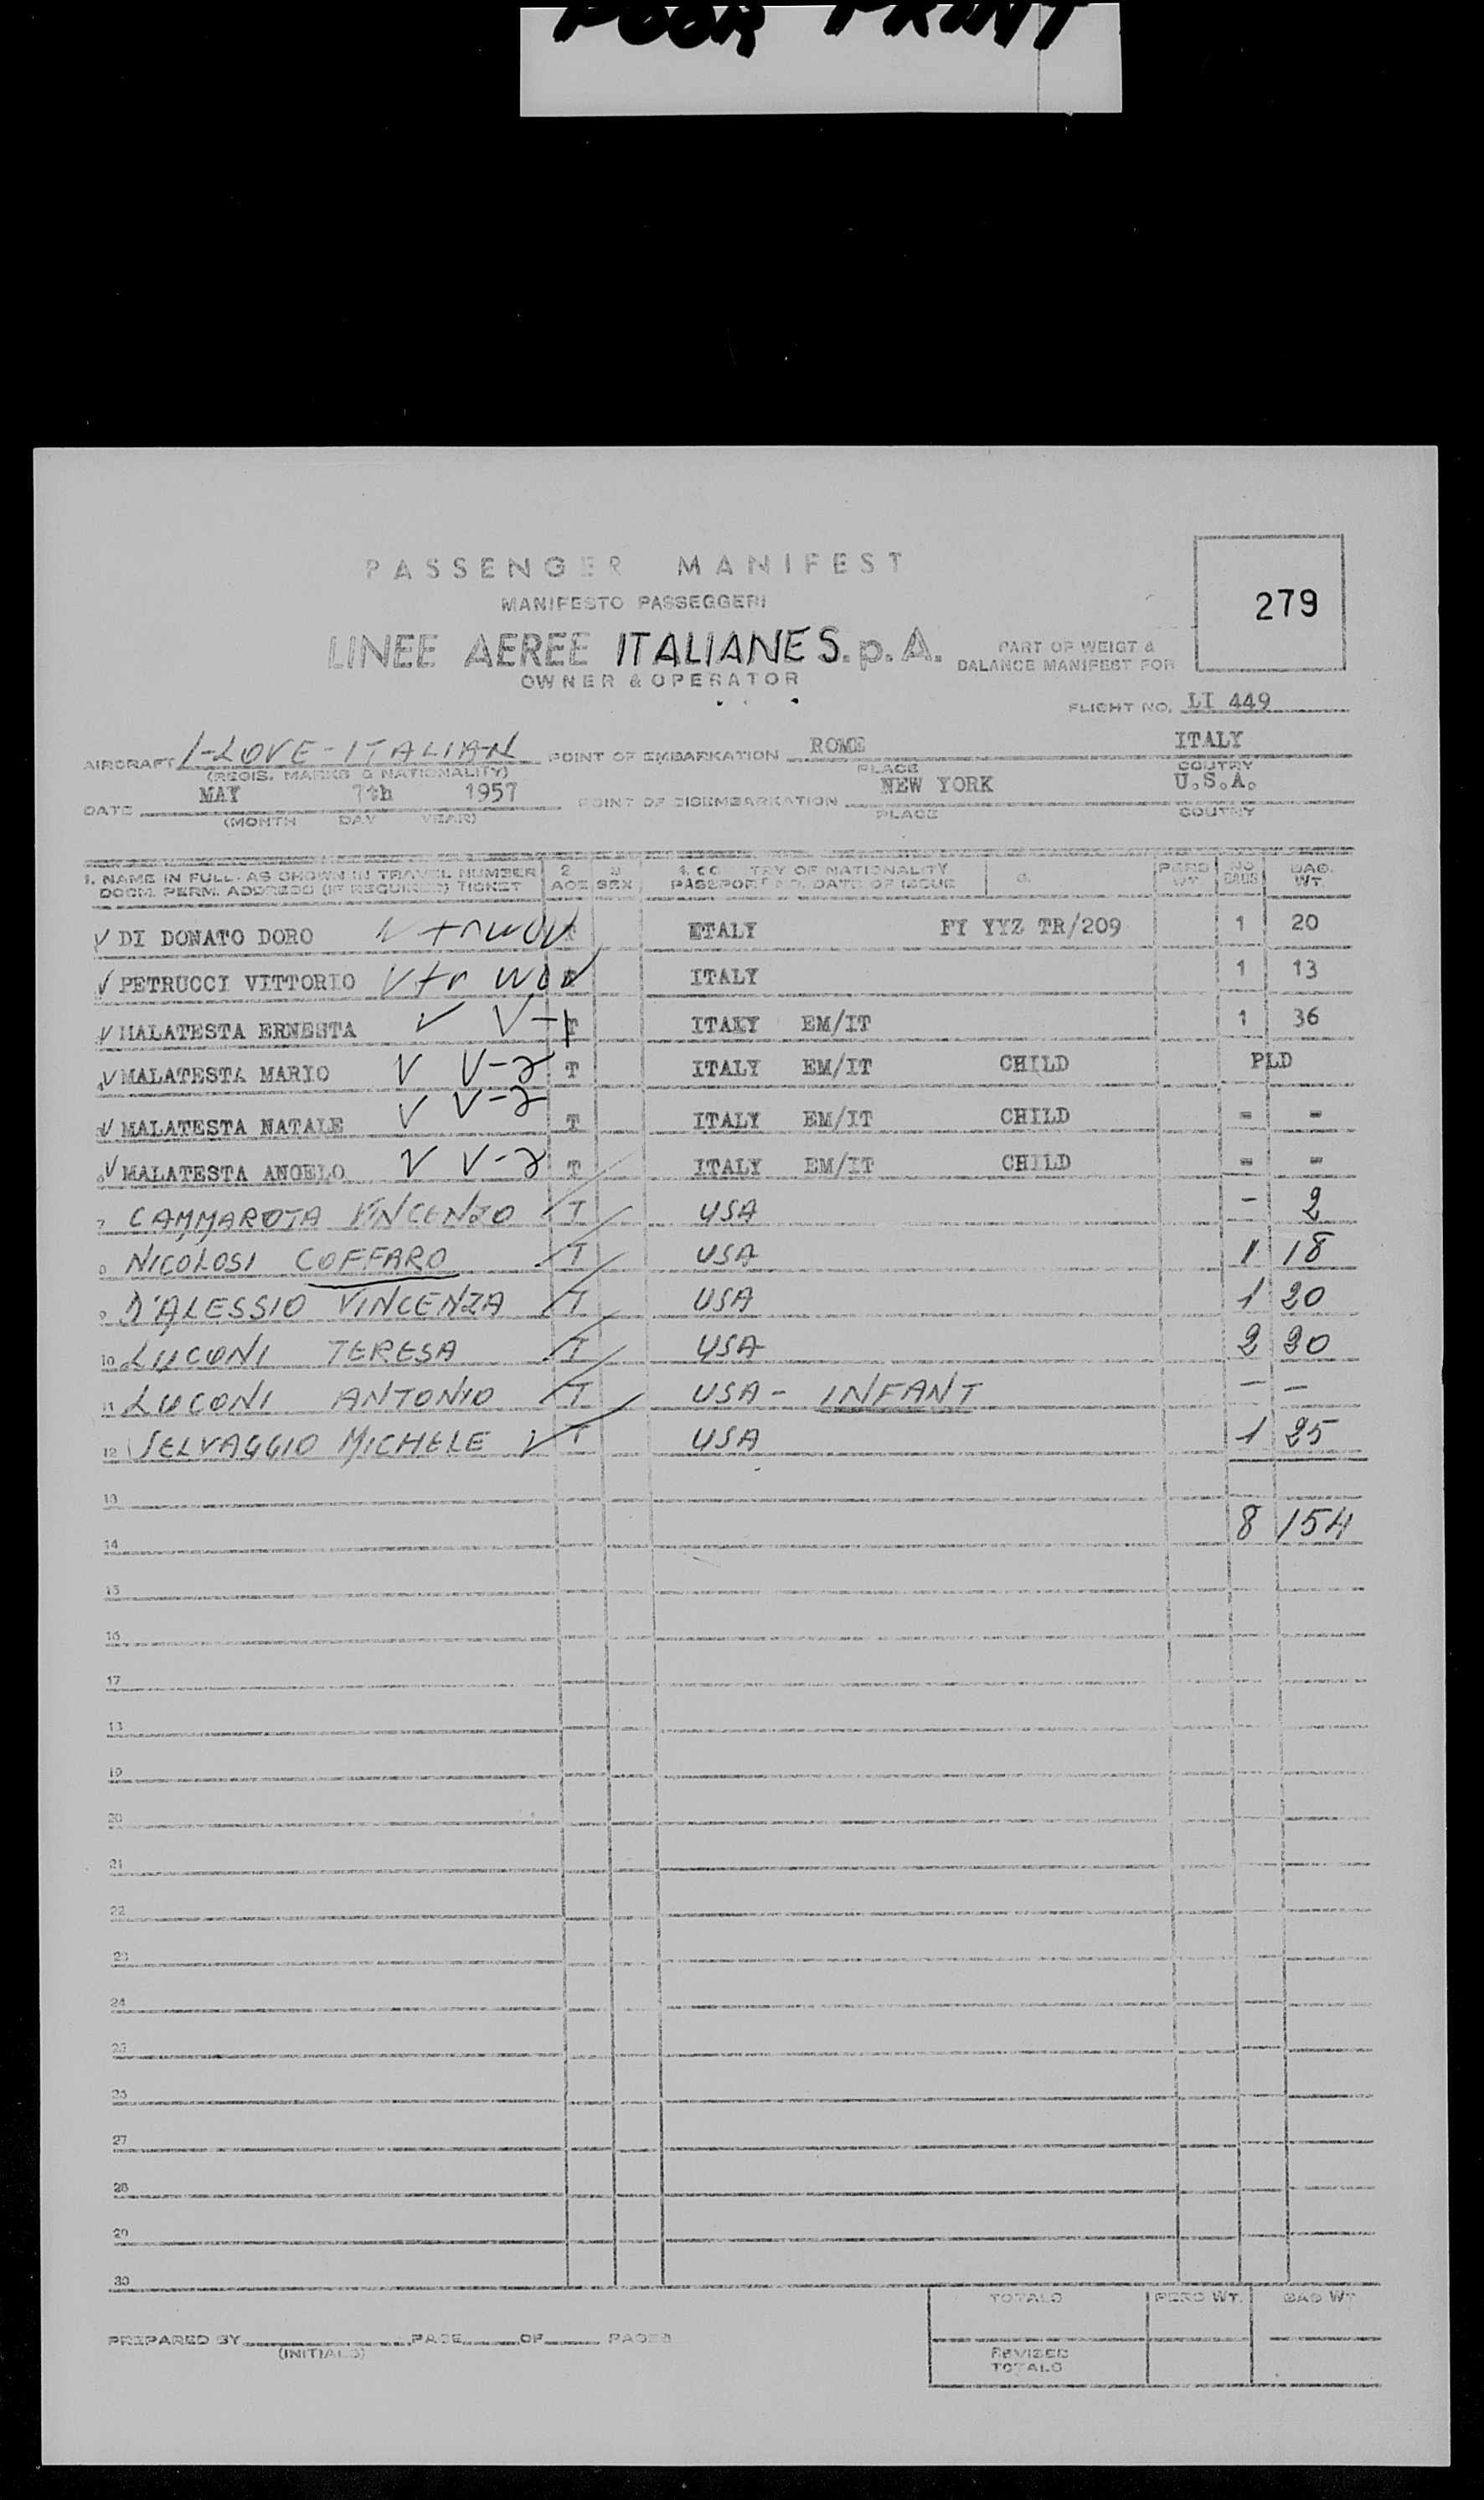 POOR PRINT
PASSENGER MANIFEST
MANIFESTO PASSEGGERI
279
LINEE AEREE ITALIANE S.p.A.
PART OF WEIGT &
BALANCE MANIFEST FOR
OWNER & OPERATOR
FLIGHT NO. LI 449
AIRCRAFT I-LOVE-ITALIAN POINT OF EMBARKATION ROME ITALY
(REGIS. MARKS & NATIONALITY) PLACE COUTRY
DATE MAY 7th 1957 POINT OF DISEMBARKATION NEW YORK U.S.A.
(MONTH DAY YEAR) PLACE COUTRY
1. NAME IN FULL. AS SHOWN IN TRAVEL NUMBER 2 3 4. COUNTRY OF NATIONALITY PERS NO BAG.
DOCM. PERM. ADDRESS (IF REQUIRED) TICKET AGE SEX PASSPORT NO. DATE OF ISSUE WT. BAGS WT.
V DI DONATO DORO ITALY FY YYZ TR/209 1 20
V PETRUCCI VITTORIO ITALY 1 13
V MALATESTA ERNESTA V V-1 T ITALY EM/IT 1 36
V MALATESTA MARIO V V-2 T ITALY EM/IT CHILD PLD
V MALATESTA NATALE V V-2 T ITALY EM/IT CHILD - -
V MALATESTA ANGELO V V-2 T ITALY EM/IT CHILD - -
7 CAMMAROTA VINCENZO T USA - 2
8 NICOLOSI COFFARO T USA 1 18
9 D'ALESSIO VINCENZA T USA 1 20
10 LUCONI TERESA T USA 2 20
11 LUCONI ANTONIO T USA - INFANT - -
12 SELVAGGIO MICHELE T USA 1 25
13
8 154
14
15
16
17
18
19
20
21
22
23
24
25
26
27
28
29
30
TOTALS PERS WT. BAG WT
PREPARED BY PAGE OF PAGES
(INITIALS)
REVISED
TOTALS